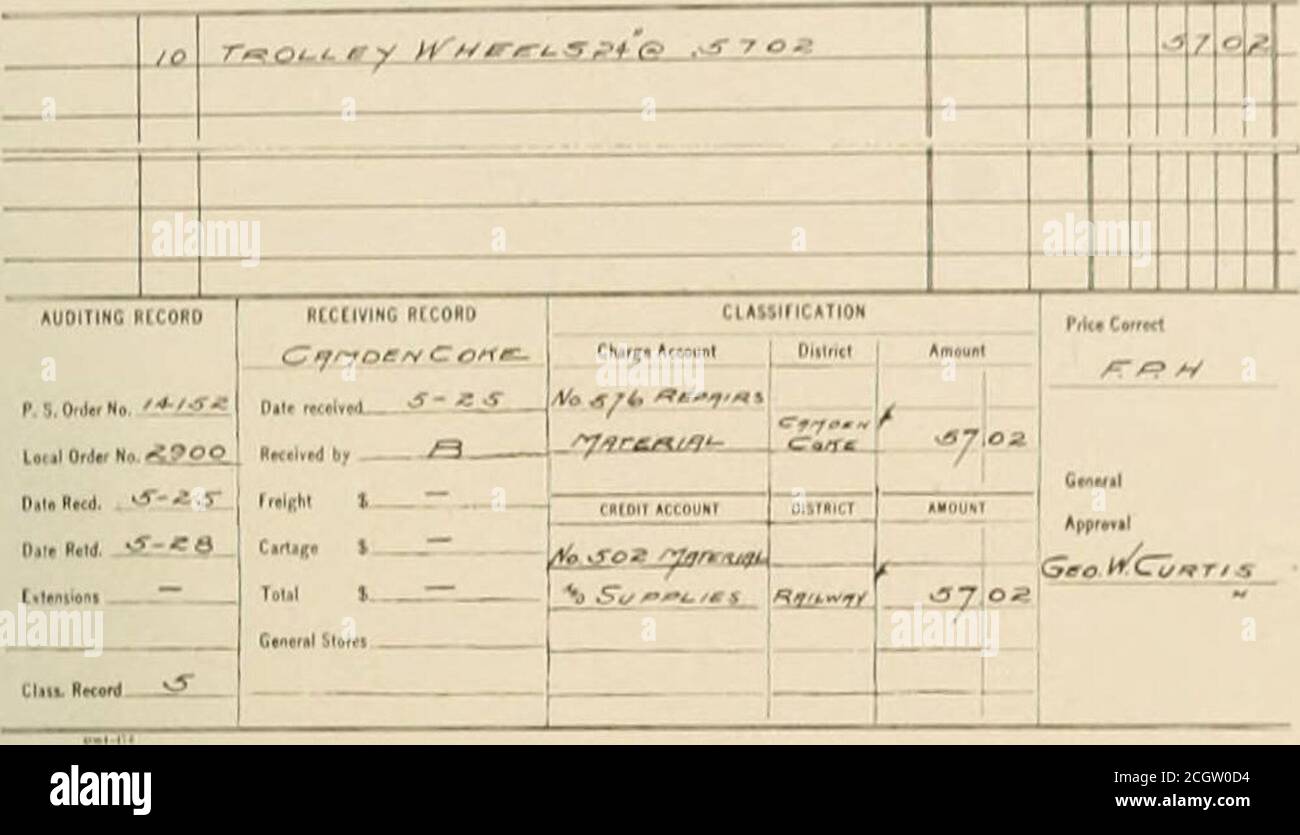 10 TROLLEY WHEELS 24" @ .5702 57 02
AUDITING RECORD
P. S. Order No. 14152
Local Order No. 2900
Date Recd. 5-25
Date Retd. 5-28
Extensions —
Class. Record 5
RECEIVING RECORD
CAMDEN COKE
Date received 5-25
Received by B
Freight $ —
Cartage $ —
Total $ —
General Stores
CLASSIFICATION
Charge Account District Amount
No. 576 REPAIRS
MATERIAL CAMDEN COKE 57 02
CREDIT ACCOUNT DISTRICT AMOUNT
No. 502 MATERIAL
SUPPLIES RAILWAY 57 02
Price Correct
F. P. H
General
Approval
GEO. W. CURTIS
H
alamy
Image ID: 2CGW0D4
www.alamy.com